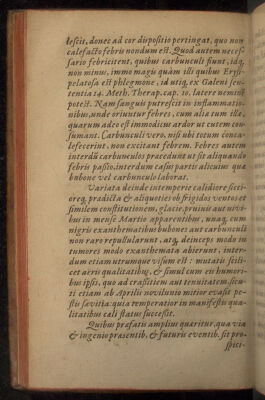 lescit, donec ad cor dispositio pertingat, quo non
calefacto febris nondum est. Quod autem neces-
sario febricitent, quibus carbunculi fiunt, idq́,
non minus, immo magis quàm illi quibus Erysi-
pelatosa est phlegmone, id utiq́, ex Galeni sen-
tentia 14. Meth. Therap. cap. 10. latere nemini
potest. Nam sanguis putrescit in inflammatio-
nibus, unde oriuntur febres, cum alia tum
quarum adeo est immodicus ardor ut cutem con-
sumant. Carbunculi vero, nisi ubi totum conca-
lefecerint, non excitant febrem. Febres autem
interdū carbunculos præcedunt ut sit aliquando
febris passio, interdum casus partis alicuius quæ
bubone vel carbunculo laborat.
Variata deinde intemperie calidiore sicci-
oreq́, prædicta & aliquoties ob frigidos ventos et
similem constitutionem, glacie, pruinis aut nivi-
bus in mense Martio apparentibus, unaq́, cum
nigris exanthematibus bubones aut carbunculi
non raro repullularunt, atq́, deinceps modo in
tumores modo exanthemata abierunt, inter-
dum etiam utrumque visum est: mutatis scili-
cet aëris qualitatibus, & simul cum eis humori-
bus ipsis, quo ad crassitiem aut tenuitatem. secu-
ti etiam ab Aprilis novilunio mitior evasit pe-
stis sævitia: quia temperatior in manifestis qua-
litatibus cæli status successit.
Quibus præfatis amplius quæritur, qua via
& ingenio præsentib. & futuris eventib. sit pro-
spici-